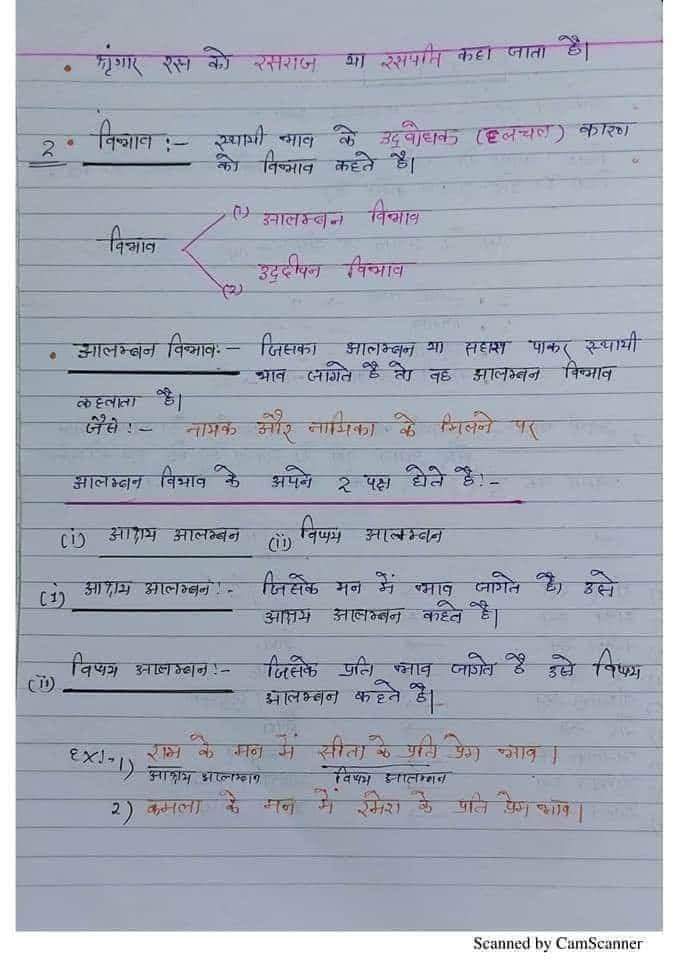 • शृंगार रस को रसराज या रसपति कहा जाता है।
2 • विभाव :- स्थायी भाव के उद्बोधक (हलचल) कारण
को विभाव कहते है।
(1) आलम्बन विभाव
विभाव
उद्दीपन विभाव
(2)
• आलम्बन विभाव:- जिसका आलम्बन या सहारा पाकर स्थायी
भाव जागते है तो वह आलम्बन विभाव
कहलाता है।
जैसे :- नायक और नायिका के मिलने पर
आलम्बन विभाव के अपने 2 पक्ष होते है :-
(i) आश्रय आलम्बन (ii) विषय आलम्बन
(i) आश्रय आलम्बन :- जिसके मन में भाव जागते है, उसे
आश्रय आलम्बन कहते है।
(ii) विषय आलम्बन :- जिसके प्रति भाव जागते है उसे विषय
आलम्बन कहते है।
EX!-1) राम के मन में सीता के प्रति प्रेम भाव।
आश्रय आलम्बन विषय आलम्बन
2) कमला के मन में रमेश के प्रति प्रेम भाव।
Scanned by CamScanner